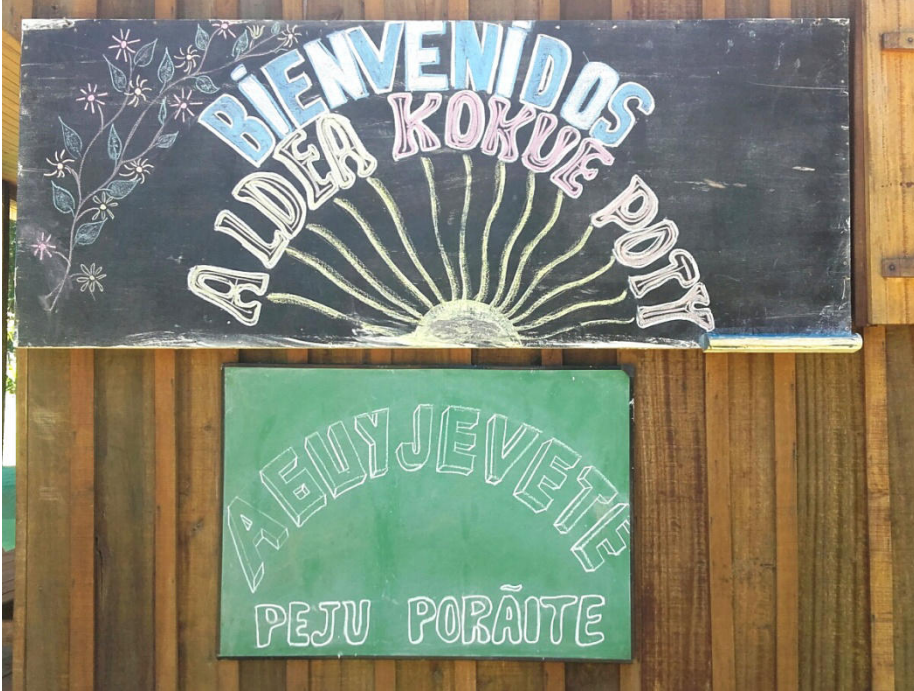 BIENVENIDOS
ALDEA KOKUE POTY
AGUYJEVETE
PEJU PORÃITE